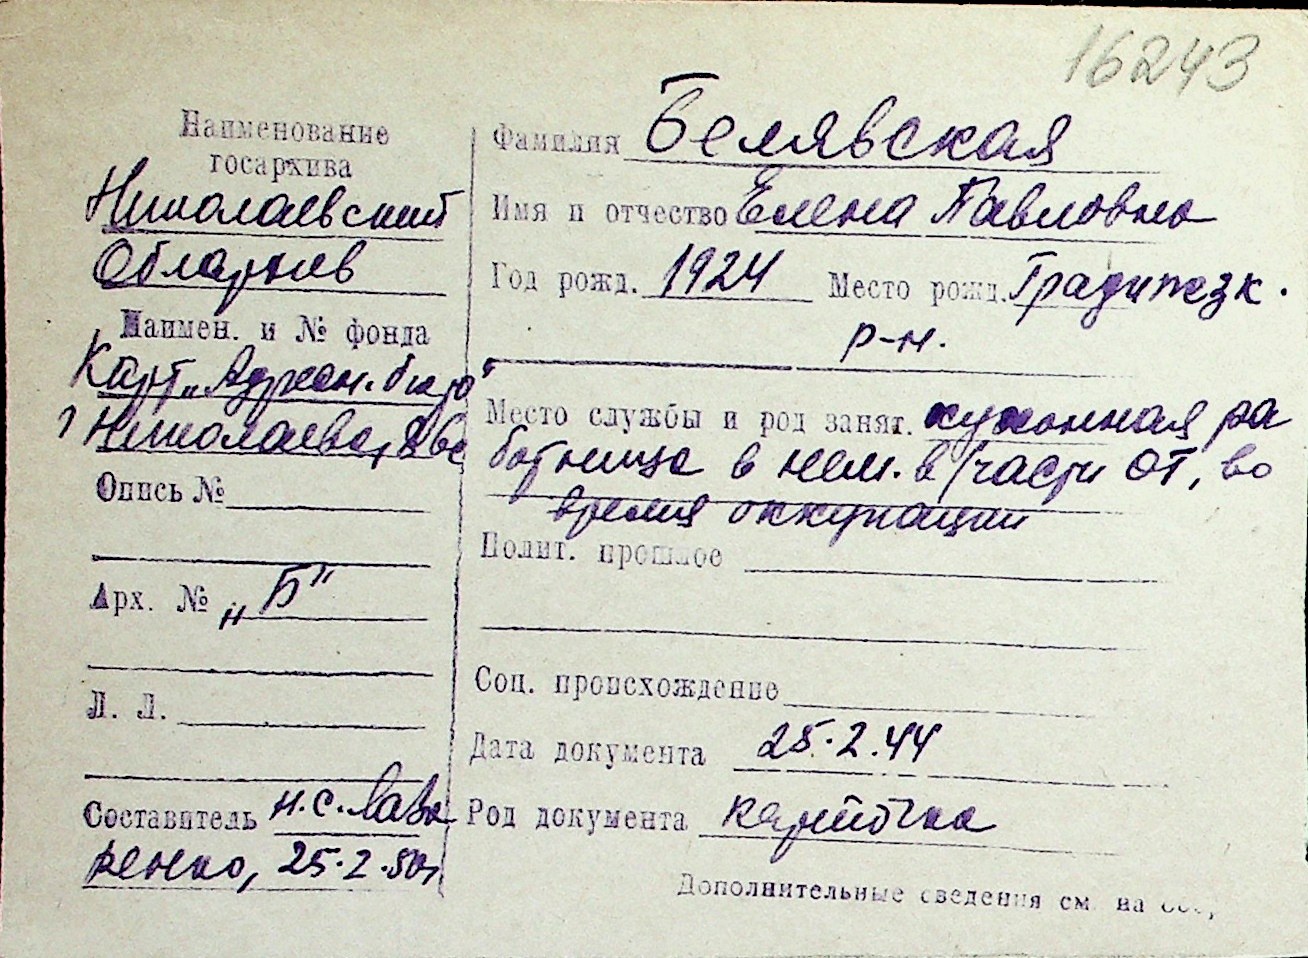 16243
Наименование
госархива
Николаевский
Облархив
Наимен. и № фонда
Карт. „Адресн. бюро"
г Николаева,
Опись №
Арх. № „Б"
Л. Л.
Составитель Н.С. Лав
ренко, 25.2.50г.
Фамилия Белявская
Имя и отчество Елена Павловна
Год рожд. 1924 Место рожд. Градижск.
р-н.
Место службы и род занят. кухонная ра
ботница в нем. в/части ОТ, во
время оккупации
Полит. прошлое
Соц. происхождение
Дата документа 25.2.44
Род документа карточка
Дополнительные сведения см. на